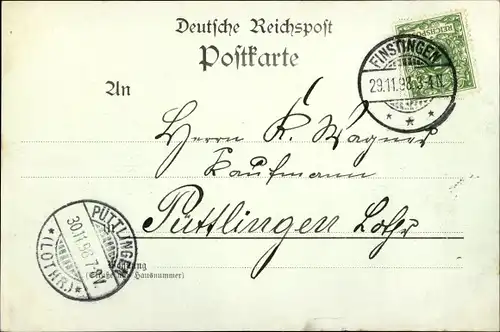 Deutsche Reichspost
Postkarte
REICHSPOST
FINSTINGEN
29.11.98.3-4 N.
* * *
An
Herrn K. Wagner
Kaufmann
Püttlingen Lothr.
PÜTTLINGEN
30.11.98.7-8V.
*(LOTHR.)*
Wohnung
(Straße und Hausnummer)